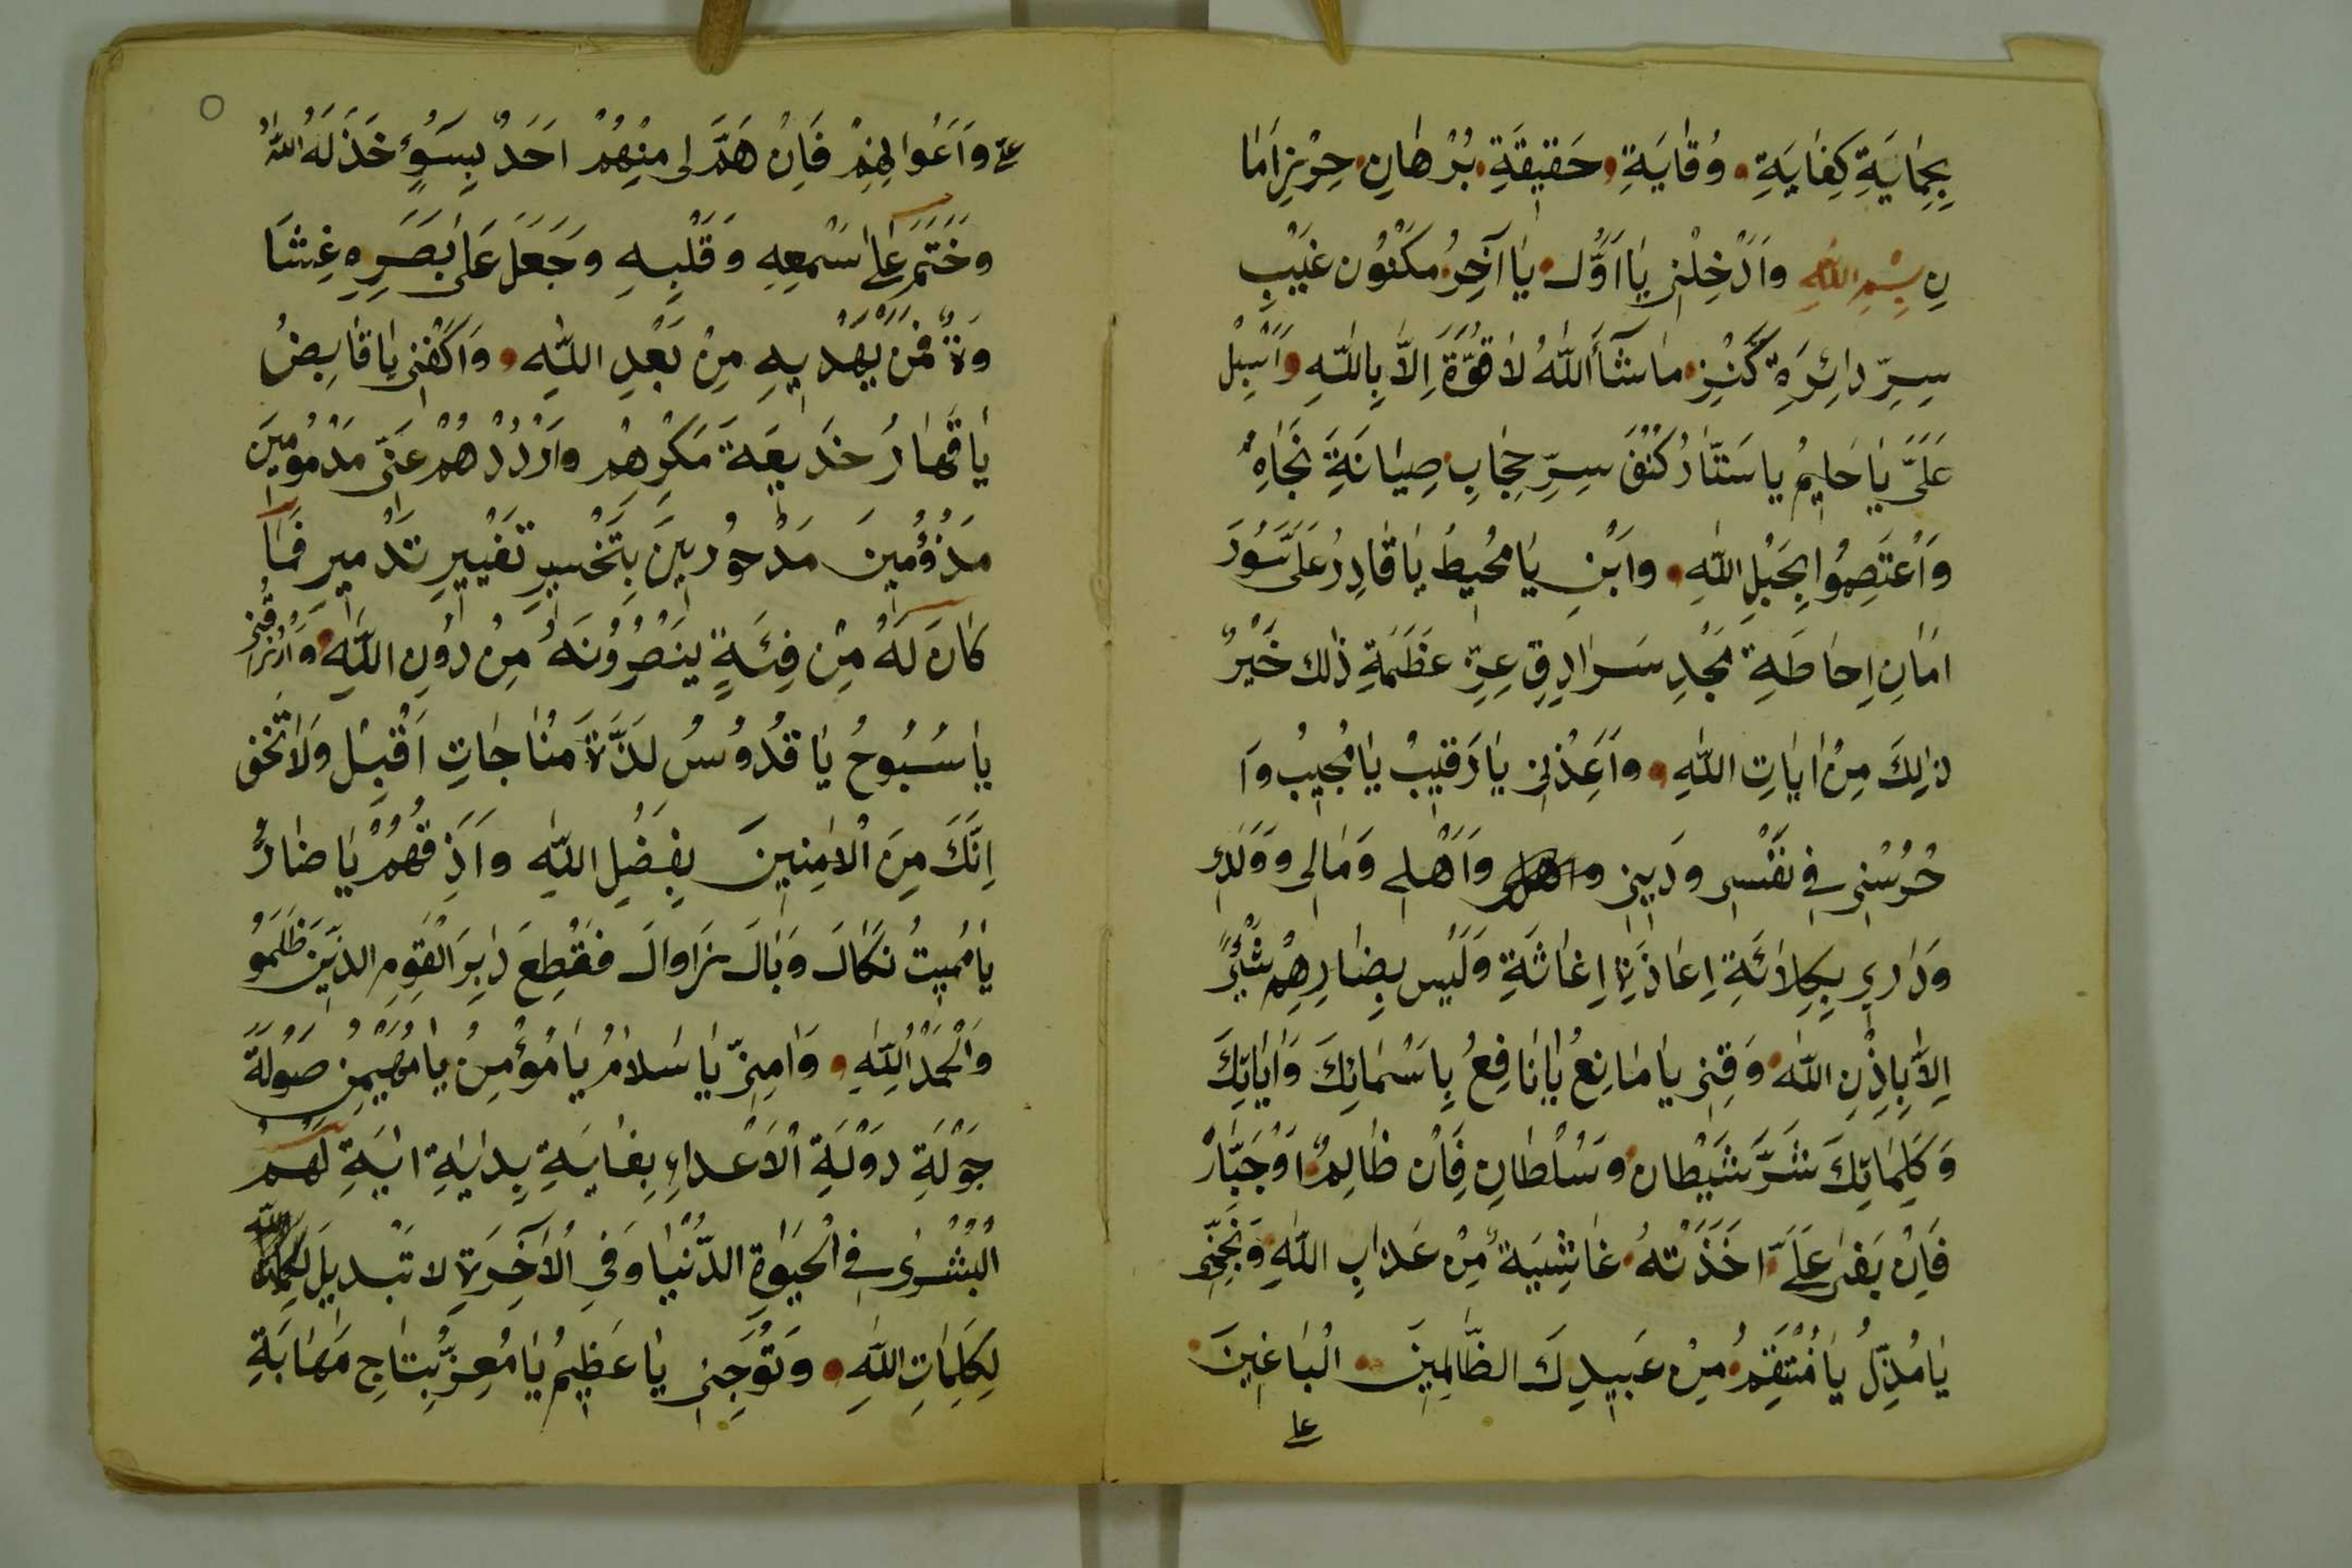 بِحِمَايَةِ كِفَايَةِ وُقَايَةِ حَقِيقَةِ بُرْهَانِ حِرْزِ اَمَا
نِ بِسْمِ اللّٰهِ وَاَدْخِلْنِى يَا اَوَّلُ يَا آخِرُ مَكْنُون غَيْبِ
سِرِّ دَائِرَةِ كَنْزِ مَا شَآءَ اللّٰهُ لَا قُوَّةَ اِلَّا بِاللّٰهِ وَاَسْبِلْ
عَلَىَّ يَا حَلِيمُ يَا سَتَّارُ كَنَفَ سِرِّ حِجَابِ صِيَانَةِ نَجَاةِ
وَاعْتَصِمُوا بِحَبْلِ اللّٰهِ وَابْنِ يَا مُحِيطُ يَا قَادِرُ عَلَىَّ سُورَ
اَمَانِ اِحَاطَةِ مَجْدِ سَرَادِقِ عِزِّ عَظَمَةِ ذٰلِكَ خَيْرٌ
ذٰلِكَ مِنْ اٰيَاتِ اللّٰهِ وَاَعِذْنِى يَا رَقِيبُ يَا مُجِيبُ وَا
حْرُسْنِى فِى نَفْسِى وَدِينِى وَاَهْلِى وَمَالِى وَوَلَدِى
وَدَارِى بِكِلَائَةِ اِعَاذَةِ اِغَاثَةِ وَلَيْسَ بِضَارِهِمْ شَيْئًا
اِلَّا بِاِذْنِ اللّٰهِ وَقِنِى يَا مَانِعُ يَا نَافِعُ بِاَسْمَائِكَ وَاٰيَاتِكَ
وَكَلِمَاتِكَ شَرَّ شَيْطَانِ وَسُلْطَانِ فَاِنْ ظَالِمٌ اَوْ جَبَّارٌ
فَاِنْ بَغٰى عَلَىَّ اَخَذَتْهُ غَاشِيَةٌ مِنْ عَذَابِ اللّٰهِ وَنَجِّنِى
يَا مُذِلُّ يَا مُنْتَقِمُ مِنْ عَبِيدِكَ الظَّالِمِينَ الْبَاغِينَ
على
عَلَىَّ وَاَعْوَانِهِمْ فَاِنْ هَمَّ لِى مِنْهُمْ اَحَدٌ بِسُوءٍ خَذَلَهُ اللّٰهُ
وَخَتَمَ عَلٰى سَمْعِهِ وَقَلْبِهِ وَجَعَلَ عَلٰى بَصَرِهِ غِشَا
وَةً فَمَنْ يَهْدِيهِ مِنْ بَعْدِ اللّٰهِ وَاكْفِنِى يَا قَابِضُ
يَا قَهَّارُ خَدِيعَةَ مَكْرِهِمْ وَارْدُدْهُمْ عَنِّى مَذْمُومِينَ
مَذْؤُمِينَ مَدْحُورِينَ بِتَخْسِيرِ تَغْيِيرِ تَدْمِيرِ فَمَا
كَانَ لَهُ مِنْ فِئَةٍ يَنْصُرُونَهُ مِنْ دُونِ اللّٰهِ وَارْزُقْنِى
يَا سُبُوحُ يَا قُدُوسُ لَذَّةَ مُنَاجَاتِ اَقْبِلْ وَلَا تَخَفْ
اِنَّكَ مِنَ الْاٰمِنِينَ بِفَضْلِ اللّٰهِ وَاَذِقْهُمْ يَا ضَارُّ
يَا مُمِيتُ نَكَالَ وَبَالَ زَوَالَ فَقُطِعَ دَابِرَ الْقَوْمِ الَّذِينَ ظَلَمُو
وَالْحَمْدُ لِلّٰهِ وَاٰمِنِّى يَا سَلَامُ يَا مُؤْمِنُ يَا مُهَيْمِنُ صَوْلَةَ
جَوْلَةِ دَوْلَةِ الْاَعْدَاءِ بِغَايَةِ بِدَايَةِ اٰيَةِ لَهُمْ
الْبُشْرٰى فِى الْحَيٰوةِ الدُّنْيَا وَفِى الْاٰخِرَةِ لَا تَبْدِيلَ
لِكَلِمَاتِ اللّٰهِ وَتَوِّجْنِى يَا عَظِيمُ يَا مُعِزُّ بِتَاجِ مَهَابَةِ